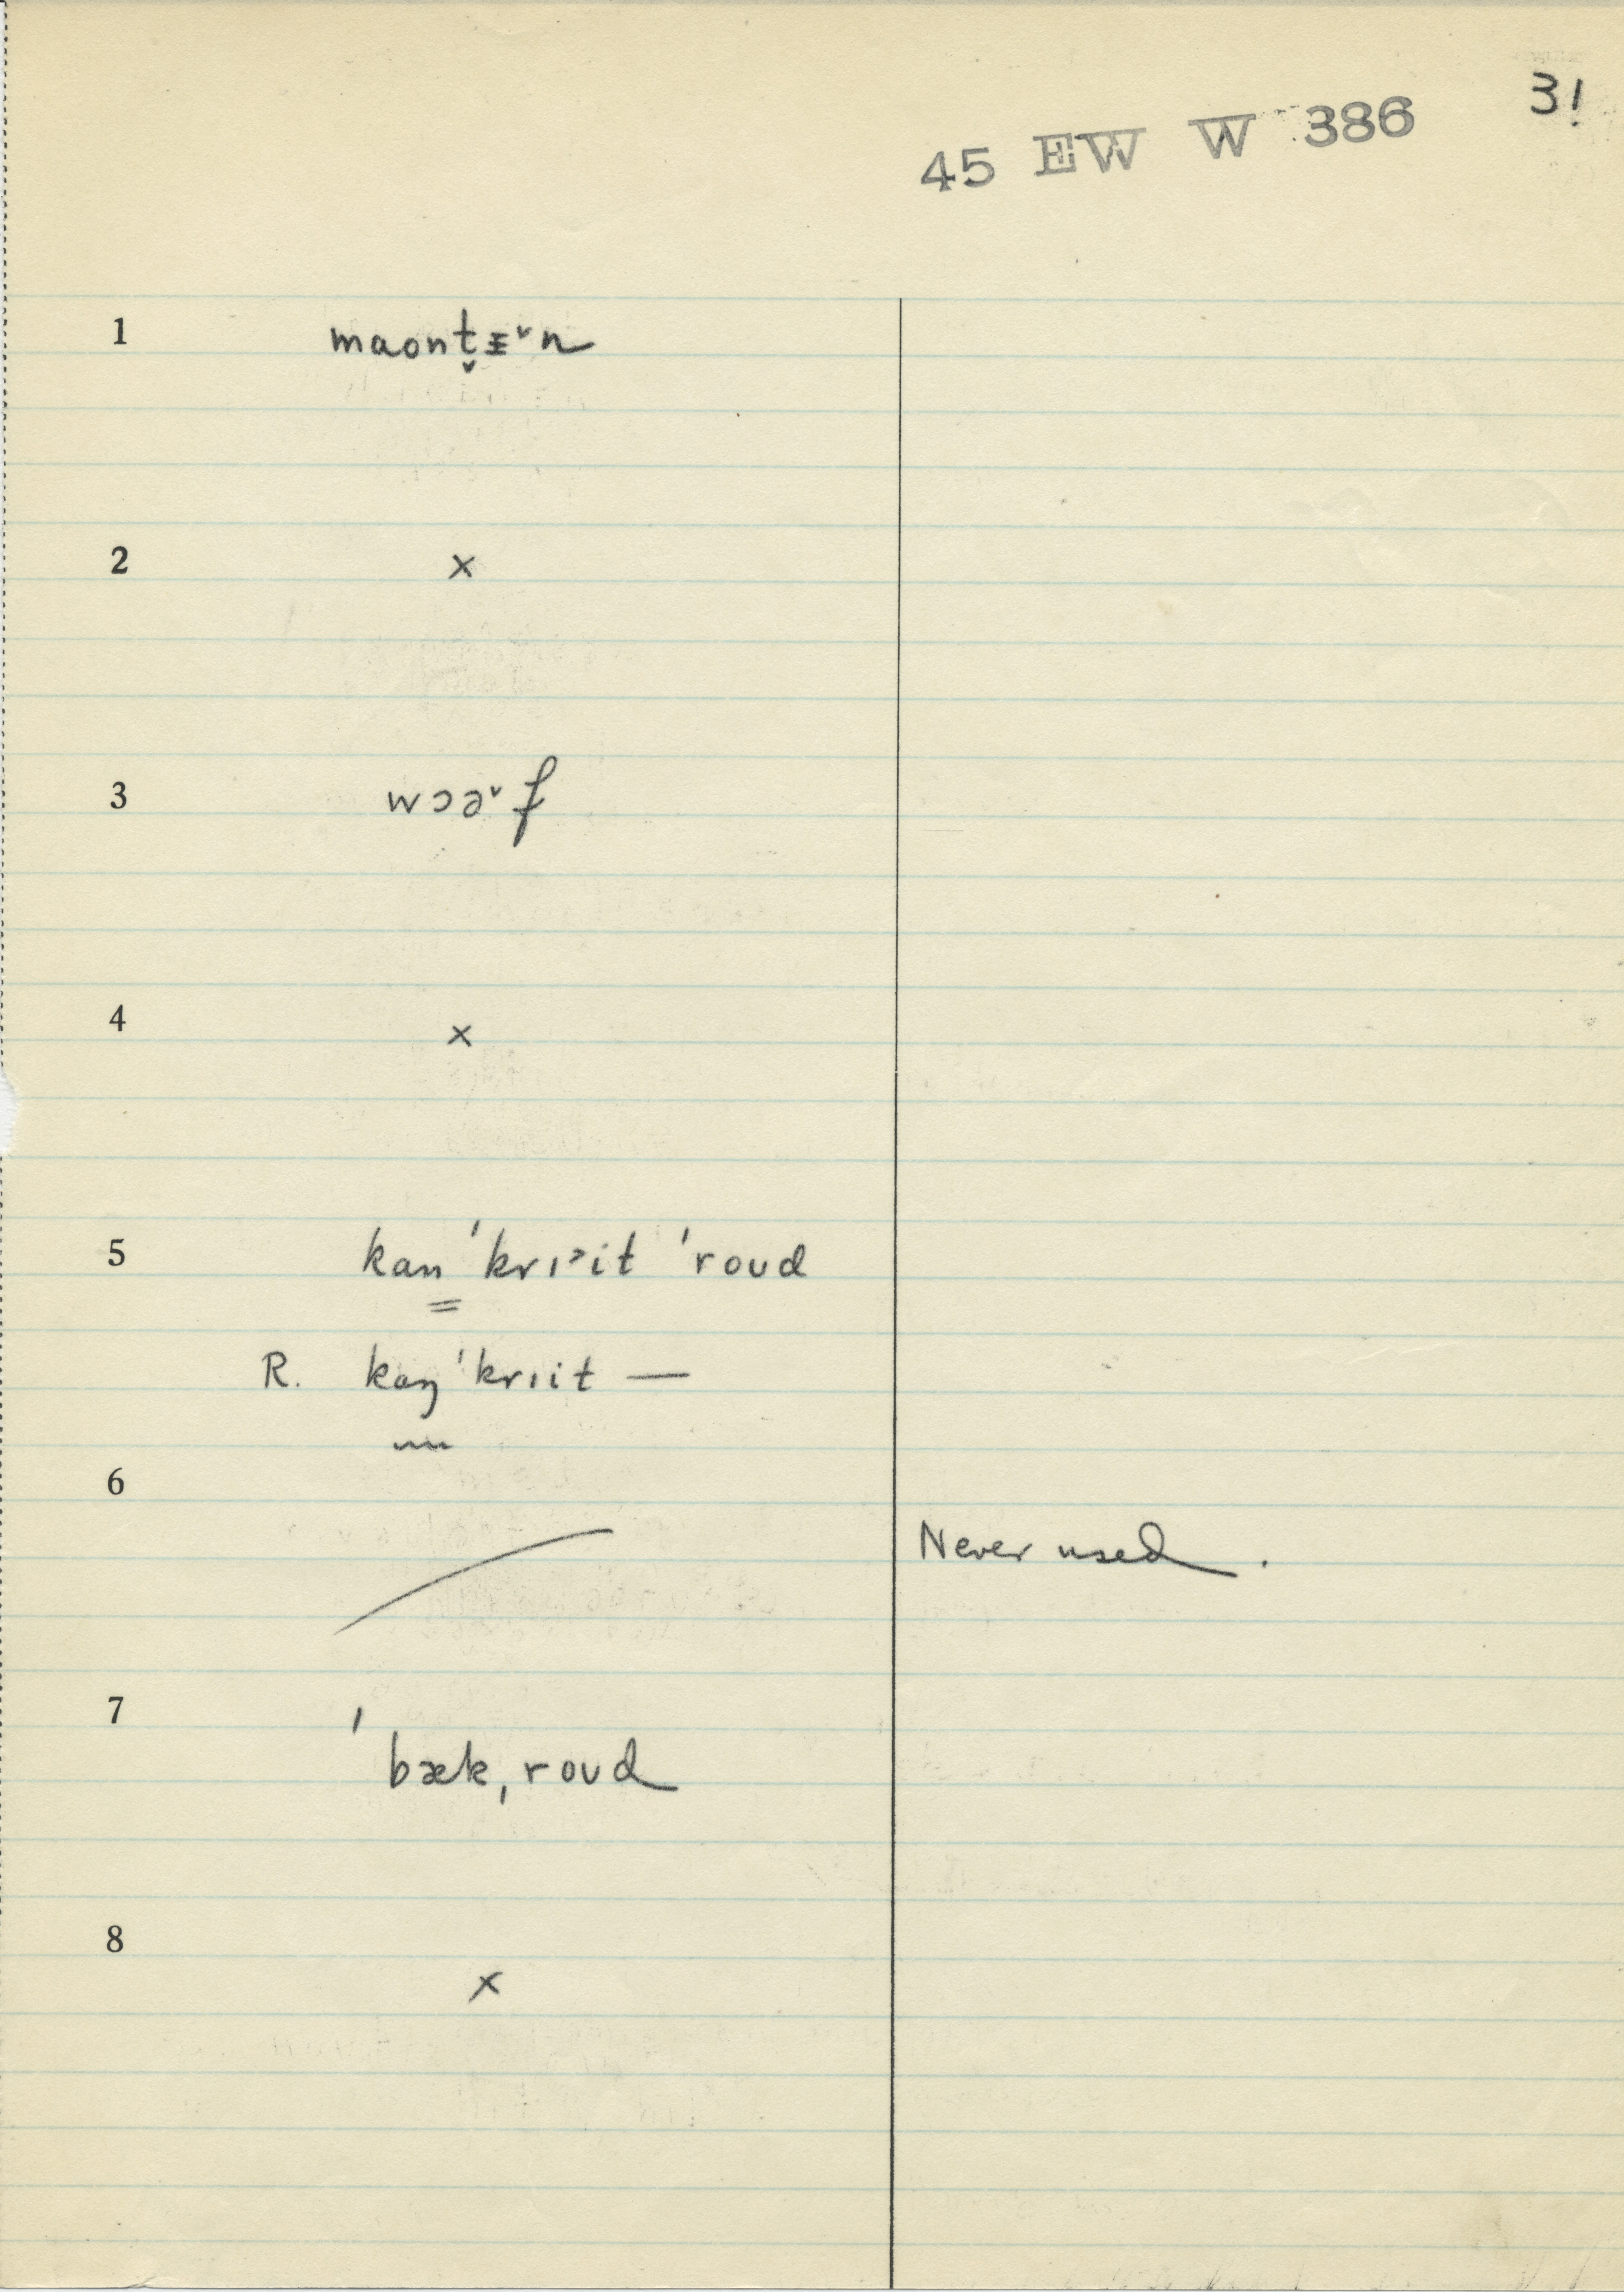 31
45 EW W 386
1 maont̬ᵻ˅n
2 ×
3 wɔə˅f
4 ×
5 kan ˈkrɪ˃it ˈroud
R. kaŋ ˈkrɪit —
6 Never used.
7 ˈbæk ˌroud
8 ×